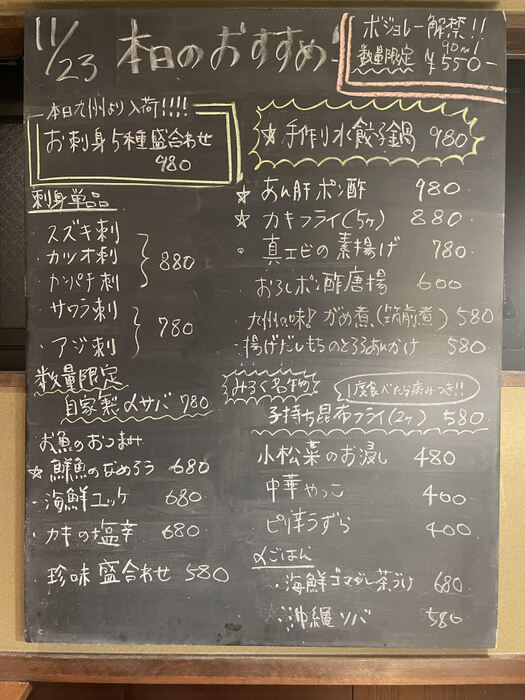 11/23 本日のおすすめ!
ボジョレー解禁!!
数量限定 90ml ¥550-
本日九州より入荷!!!!
お刺身5種盛合わせ
980
刺身単品
スズキ刺
カツオ刺
カンパチ刺
880
サワラ刺
アジ刺
780
数量限定
自家製〆サバ 780
お魚のおつまみ
☆鮮魚のなめろう 680
・海鮮ユッケ 680
・カキの塩辛 680
・珍味盛合わせ 580
☆手作り水餃子鍋 980
☆あん肝ポン酢 980
☆カキフライ(5ヶ) 880
・真エビの素揚げ 780
おろしポン酢唐揚 600
九州の味!がめ煮(筑前煮) 580
・揚げだしもちのとろろあんかけ 580
みろく名物
1度食べたら病みつき!!
子持ち昆布フライ(2ヶ) 580
小松菜のお浸し 480
中華やっこ 400
ピリ辛うずら 400
〆ごはん
・海鮮ゴマダレ茶づけ 680
・沖縄ソバ 580